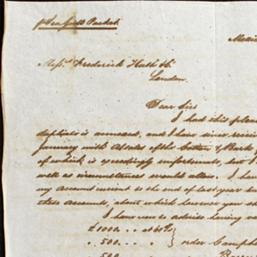 p Sea Gull Packet
Messrs. Frederick Huth & Co.
London.
Dear Sirs
I had this plea
duplicate is annexed, and I have since receiv
journey with of the Cotton & Bark
of which is exceedingly unfortunate, but I
well as circumstances would allow. I ha
my account current to the end of last year
these accounts, about which however you sh
I have now to advise having va
£1000 .. at 60 d/s
" 500 .. " order Campb
" 500